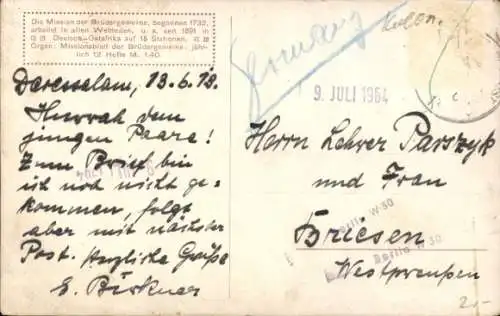 Die Mission der Brüdergemeine, begonnen 1732,
arbeitet in allen Weltteilen, u. a. seit 1891 in
Deutsch-Ostafrika auf 15 Stationen.
Organ: Missionsblatt der Brüdergemeine, jähr-
lich 12 Hefte M. 1.40.
Daressalam, 13.6.13.
Hurrah dem
jungen Paare!
Zum Brief bin
ich noch nicht ge-
kommen, folgt
aber mit nächster
Post. Herzliche Grüße
9. JULI 1964
Herrn Lehrer Parszyk
und Frau
Briesen
Westpreußen
Berlin W 30
Berlin W 30